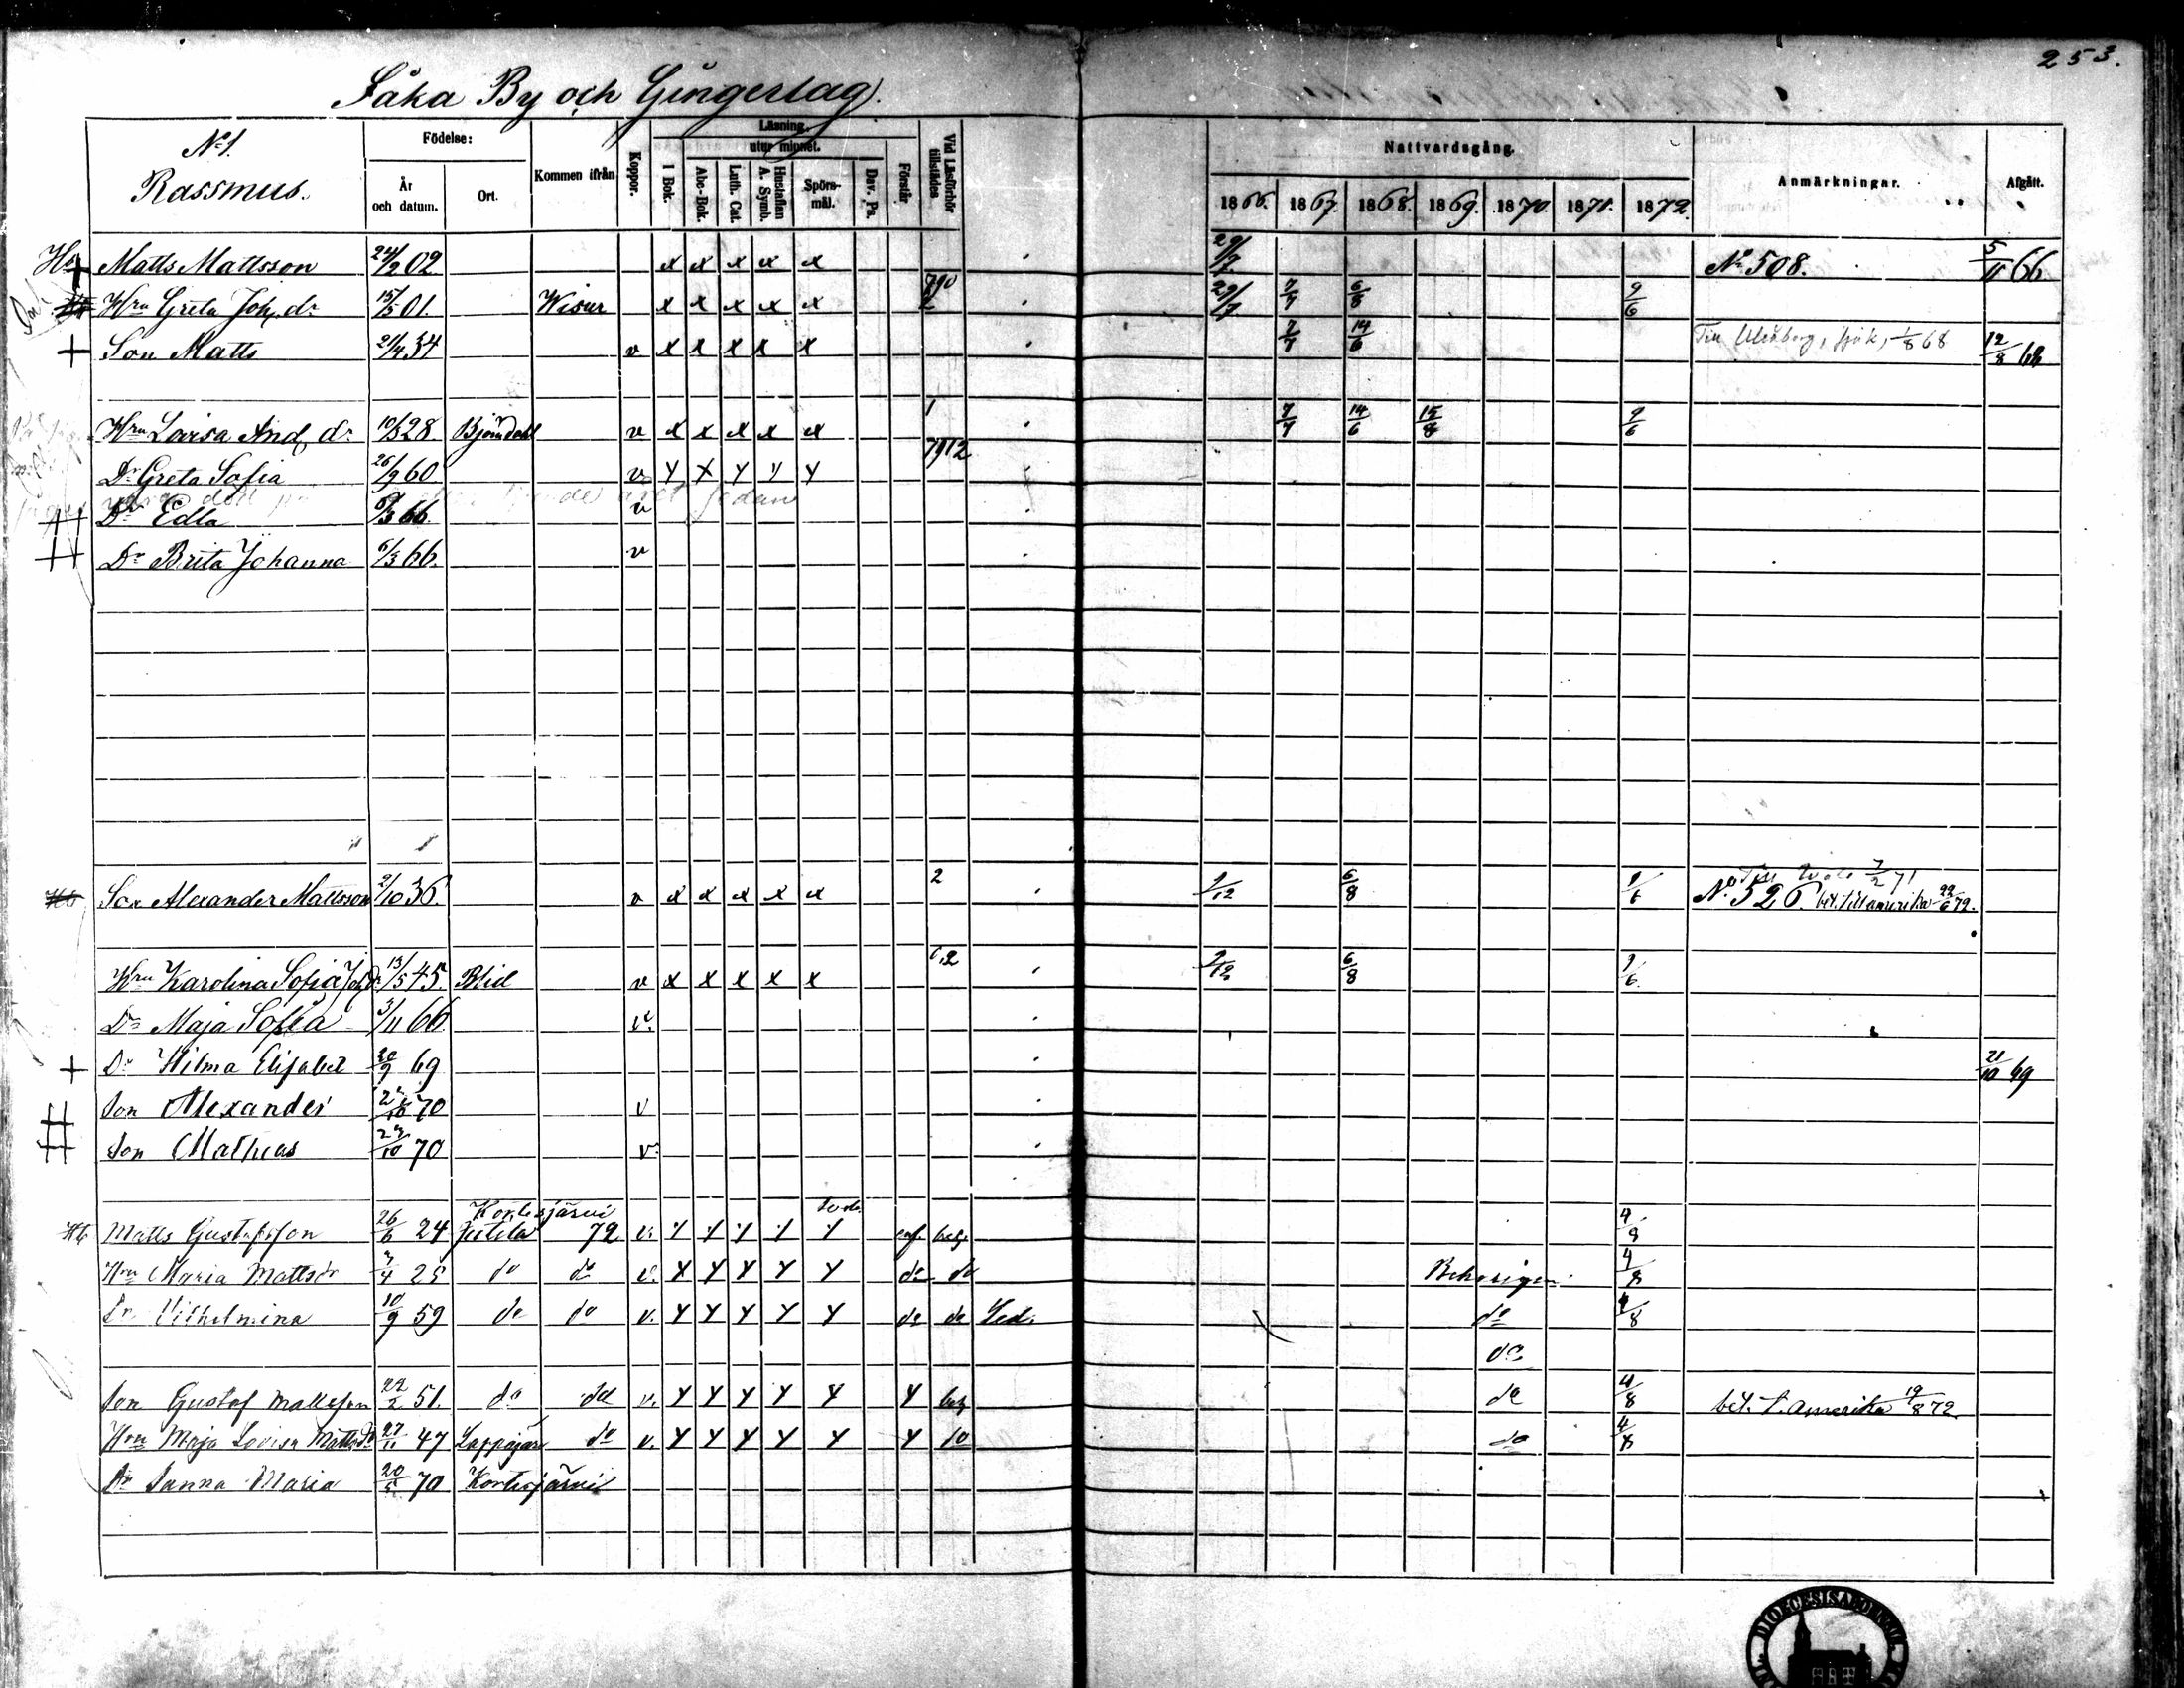 253.
Såka By och Gingerlag.
No 1.
Rassmus.
Födelse:
År och datum.
Ort.
Kommen ifrån
Koppor.
Läsning.
utur minnet.
I Bok.
Abc-Bok.
Luth. Cat.
Hustaflan A. Symb.
Spörsmål.
Dav. Ps.
Förstår
Vid Läsförhör tillstädes
Nattvardsgång.
1866. 1867. 1868. 1869. 1870. 1871. 1872.
Anmärkningar.
Afgått.
Hb + Matts Mattsson 24/2 02. x x x x x 29/7 No 508. 5/11 66
Hru Greta Joh. dr 15/5 01. Wisur x x x x x 790 2 29/7 7/7 6/8 9/6
+ Son Matts 21/4 34 v x x x x x 7/7 14/6 Till Uleåborg, sjök, 1/8 68 12/8 68
Hru Lovisa And. dr 10/3 28. Björndahl v x x x x x 1 7/7 14/6 15/8 9/6
7912
Dr Greta Sofia 26/9 60 v y x y y y
Dr Edla 6/3 66. v
Dr Brita Johanna 6/3 66. v
Hb Son Alexander Mattsson 2/10 36. v x x x x x 2 2/12 6/8 9/6 7/2 71
No 526. bet. till amerika 22/6 72.
Hru Karolina Sofia Joh. Dr 13/5 45. Blid v x x x x x 2 2/12 6/8 9/6
Dr Maja Sofia 3/11 66 v.
+ Dr Hilma Elisabet 20/9 69 21/10 69
Son Alexander 22/10 70 v
Son Mathias 22/10 70 v.
Kortesjärvi
Hb Matts Gustafsson 26/6 24 72 v. 4/8
Hru Maria Mattsdr 3/4 25 do do v. x y x y y do do Behörigen 4/8
Dr Vilhelmina 10/9 59 do do v. y y y y y do do Led. do 4/8
do
Son Gustaf Mattsson 22/2 51. do do v. y y y y y y do 4/8 bet. t. amerika 19/8 72
Hru Maja Lovisa Mattsdr 27/11 47 Lappajärvi do v. y y y y y y do do 4/8
Dr Sanna Maria 20/5 70 Kortesjärvi